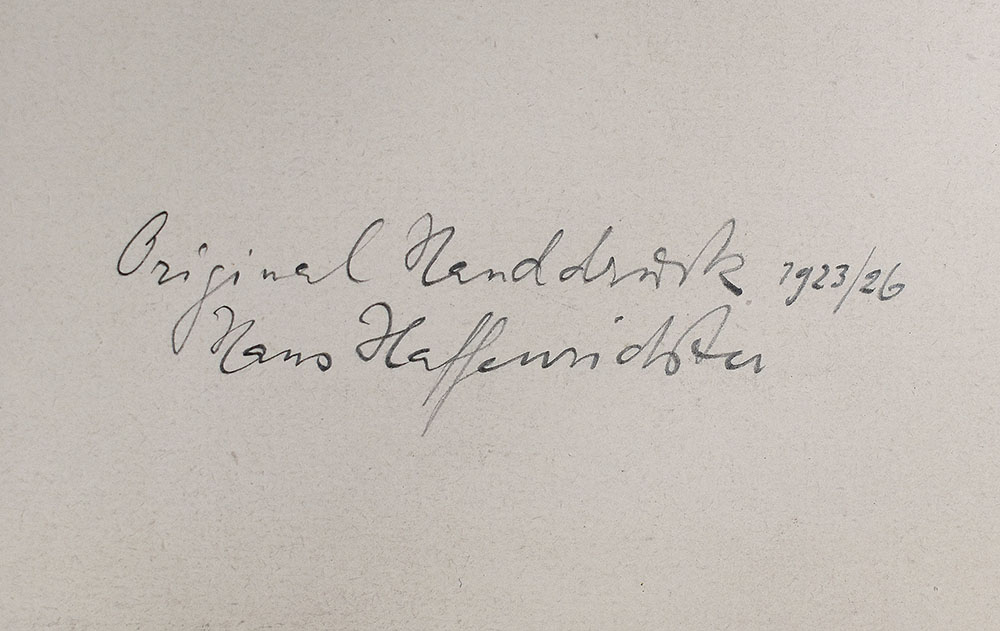 Original Handdruck 1923/26
Hans Haffenrichter